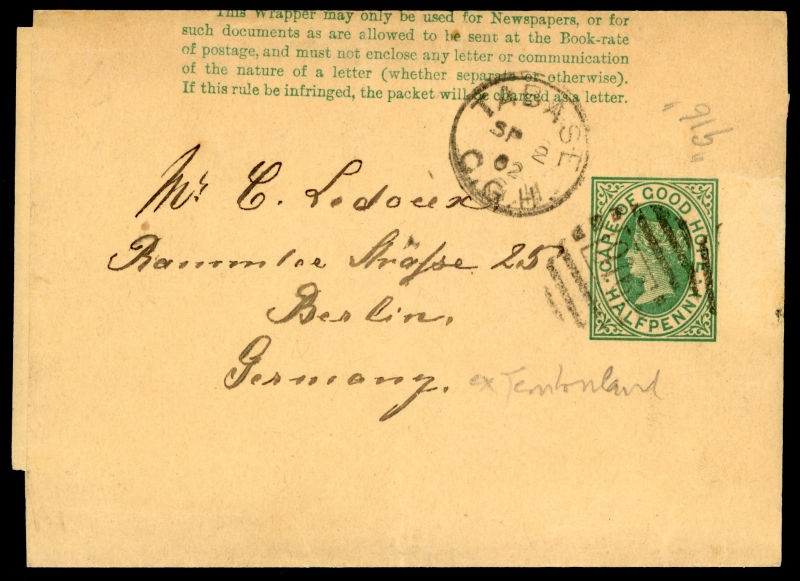 This Wrapper may only be used for Newspapers, or for
such documents as are allowed to be sent at the Book-rate
of postage, and must not enclose any letter or communication
of the nature of a letter (whether separate or otherwise).
If this rule be infringed, the packet will be charged as a letter.
TABASE
SP 2
02
C.G.H
CAPE OF GOOD HOPE
HALFPENNY
Mr C. Ledoux
Straſse 25
Berlin,
Germany.
ex